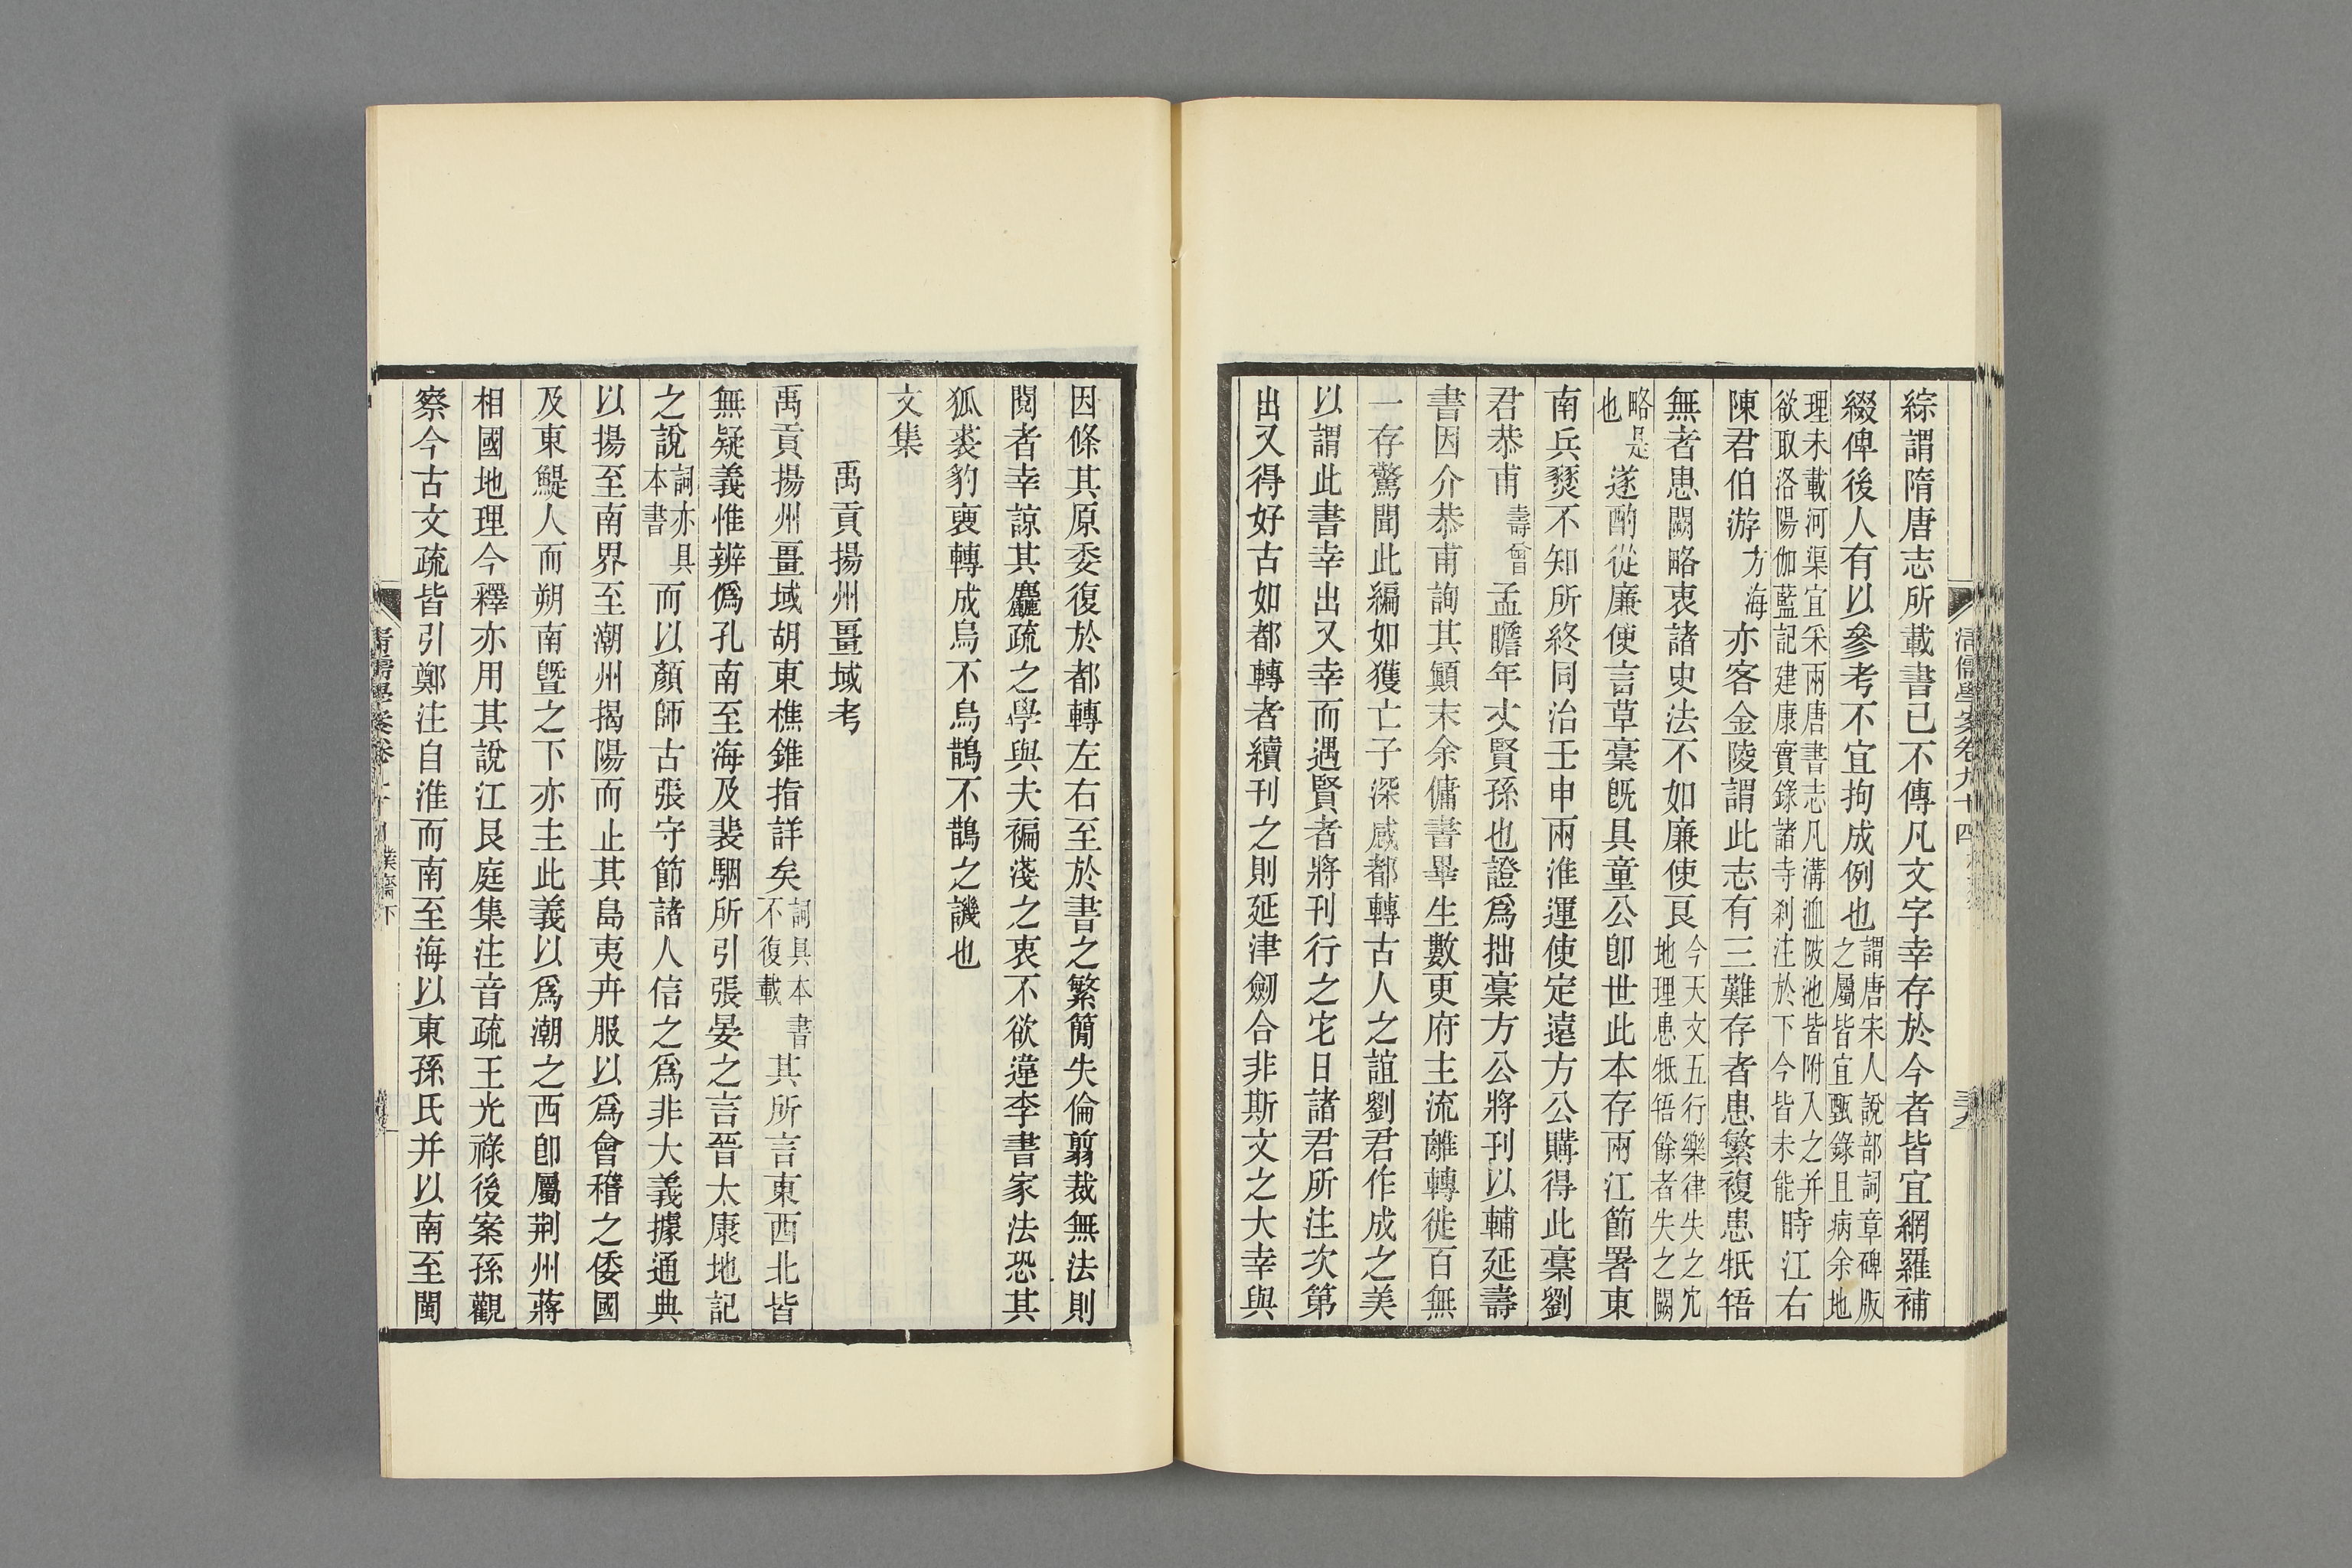 綜謂隋唐志所載書已不傳凡文字幸存於今者皆宜網羅補
綴俾後人有以參考不宜拘成例也謂唐宋人說部詞章碑版之屬皆宜甄錄且病余地
理未載河渠宜采兩唐書志凡溝洫陂池皆附入之并欲取洛陽伽藍記建康實錄諸寺剎注於下今皆未能時江右
陳君伯游方海亦客金陵謂此志有三難存者患繁複患牴牾
無者患闕略衷諸史法不如廉使艮今天文五行樂律失之宂地理患牴牾餘者失之闕
略是也遂酌從廉使言草稾既具童公卽世此本存兩江節署東
南兵燹不知所終同治壬申兩淮運使定遠方公購得此稾劉
君恭甫壽曾孟瞻年丈賢孫也證爲拙稾方公將刊以輔延壽
書因介恭甫詢其顚末余傭書畢生數更府主流離轉徙百無
一存驚聞此編如獲亡子深感都轉古人之誼劉君作成之美
以謂此書幸出又幸而遇賢者將刊行之它日諸君所注次第
出又得好古如都轉者續刊之則延津劒合非斯文之大幸與
清儒學案卷九十四
因條其原委復於都轉左右至於書之繁簡失倫翦裁無法則
閱者幸諒其麤疏之學與夫褊淺之衷不欲違李書家法恐其
狐裘豹褎轉成烏不烏鵲不鵲之譏也
文集
禹貢揚州畺域考
禹貢揚州畺域胡東樵錐指詳矣詞具本書不復載其所言東西北皆
無疑義惟辨僞孔南至海及裴駰所引張晏之言晉太康地記
之說詞亦具本書而以顏師古張守節諸人信之爲非大義據通典
以揚至南界至潮州揭陽而止其島夷卉服以爲會稽之倭國
及東鯷人而朔南曁之下亦主此義以爲潮之西卽屬荆州蔣
相國地理今釋亦用其說江艮庭集注音疏王光祿後案孫觀
察今古文疏皆引鄭注自淮而南至海以東孫氏并以南至閩